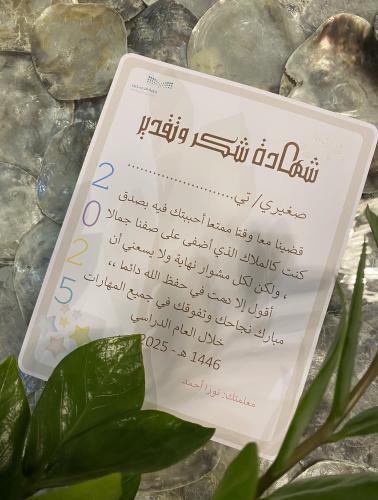 شهادة شكر وتقدير
صغيري/ تي..........................
قضينا معا وقتا ممتعا أحببتك فيه بصدق
كنت كالملاك الذي أضفى على صفنا جمالا
، ولكن لكل مشوار نهاية ولا يسعني أن
أقول إلا دمت في حفظ الله دائما ،،
مبارك نجاحك وتفوقك في جميع المهارات
خلال العام الدراسي
1446 هـ - 2025
معلمتك: نورا أحمد
2
0
2
5